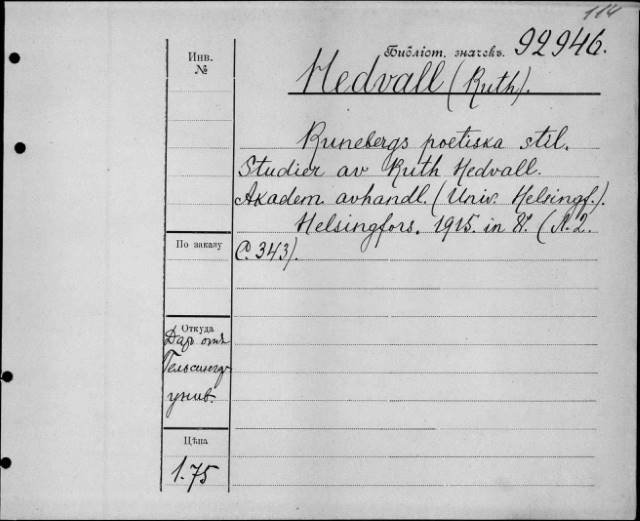 114
Библіот. значекъ. 92946.
Инв.
№
Hedvall (Ruth).
Runebergs poetiska stil.
Studier av Ruth Hedvall.
Akadem. avhandl. (Univ. Helsingf.).
Helsingfors. 1915. in 8º. (Л. 2.
С. 343).
По заказу
Откуда
Даръ отъ
Гельсингф.
унив.
Цѣна
1.75